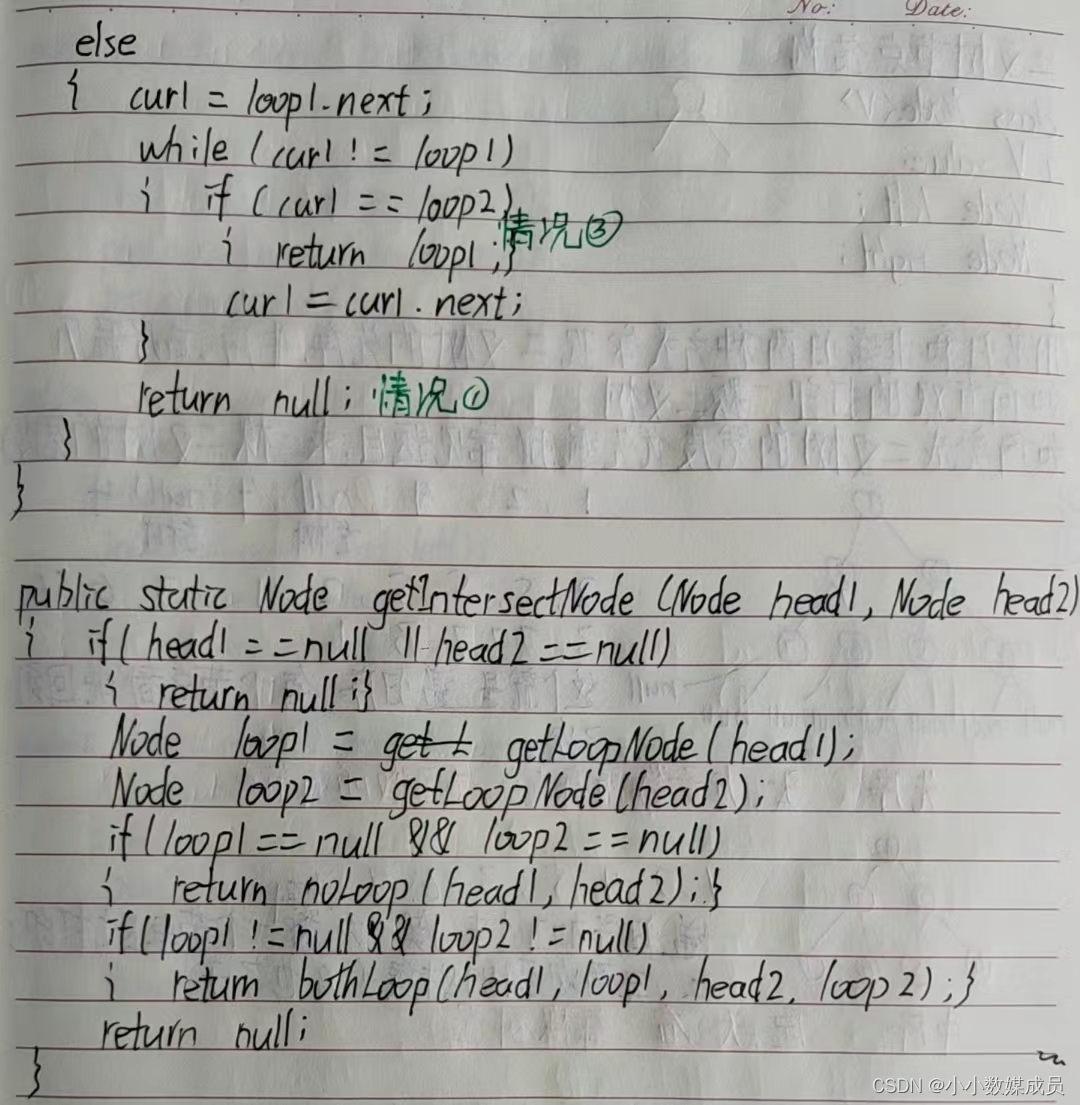 No: Date:
else
{ cur1 = loop1.next;
while (cur1 != loop1)
{ if (cur1 == loop2)
{ return loop1;} 情况③
cur1 = cur1.next;
}
return null; 情况①
}
}
public static Node getIntersectNode (Node head1, Node head2)
{ if( head1 == null || head2 == null)
{ return null;}
Node loop1 = get L getLoopNode(head1);
Node loop2 = getLoopNode(head2);
if(loop1 == null && loop2 == null)
{ return noLoop(head1, head2);}
if(loop1 != null && loop2 != null)
{ return bothLoop(head1, loop1, head2, loop2);}
return null;
}
CSDN @小小数媒成员